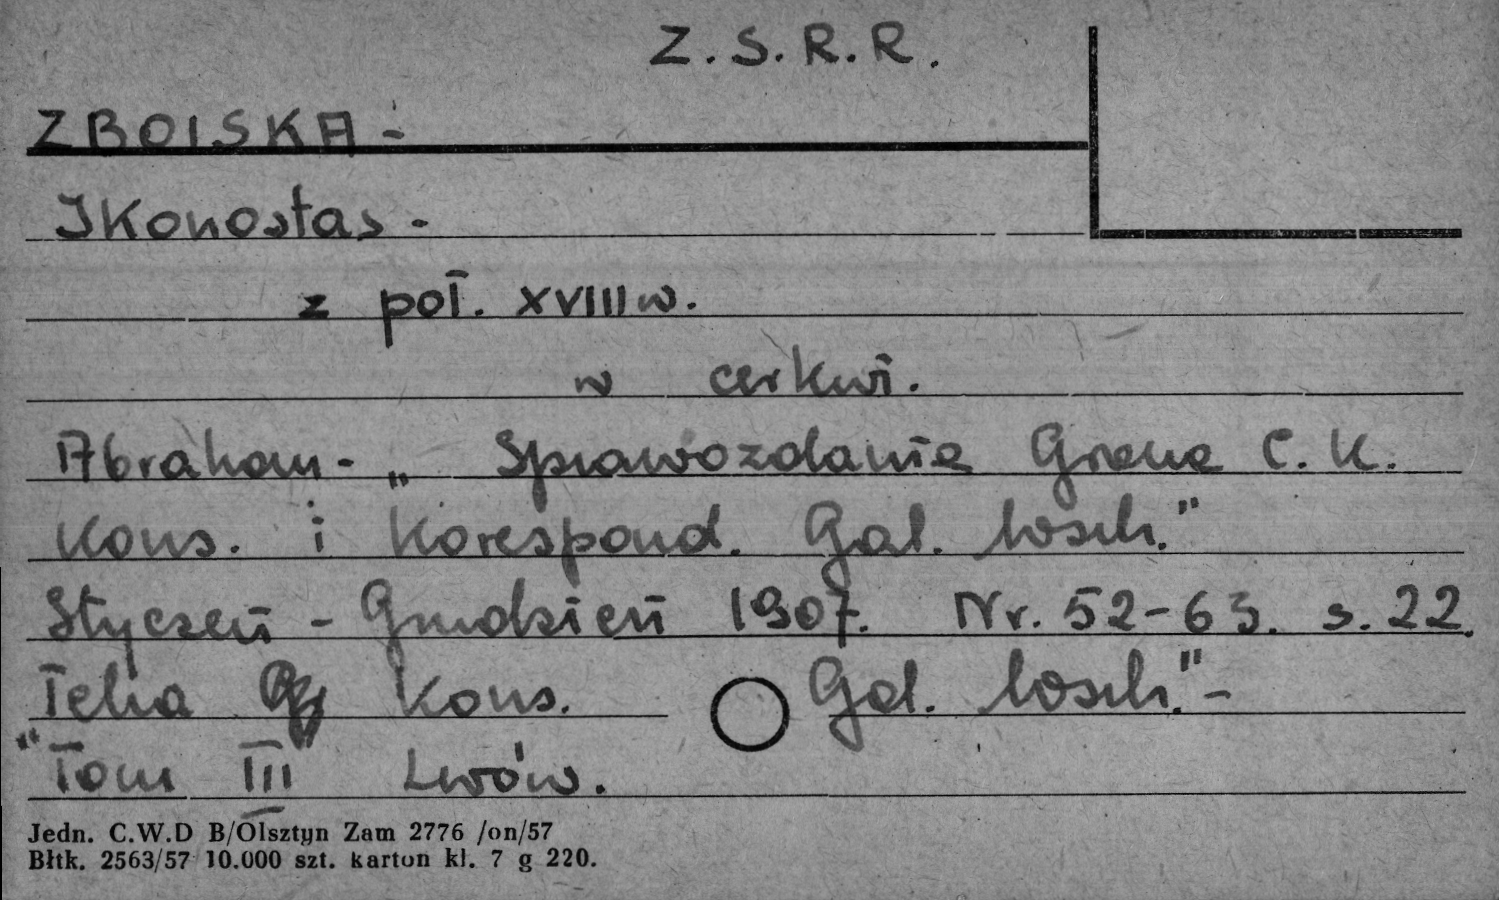 Z.S.R.R.
ZBOISKA -
Ikonostas -
z poł. XVIII w.
w cerkwi.
Abraham - „Sprawozdanie Grona C. K.
Kons. i Korespond. Gal. wsch."
Styczeń - Grudzień 1907. Nr. 52-63. s. 22.
Teka Kons. Gal. wsch." -
"Tom III Lwów.
Jedn. C.W.D B/Olsztyn Zam 2776 /on/57
Błtk. 2563/57 10.000 szt. karton kl. 7 g 220.